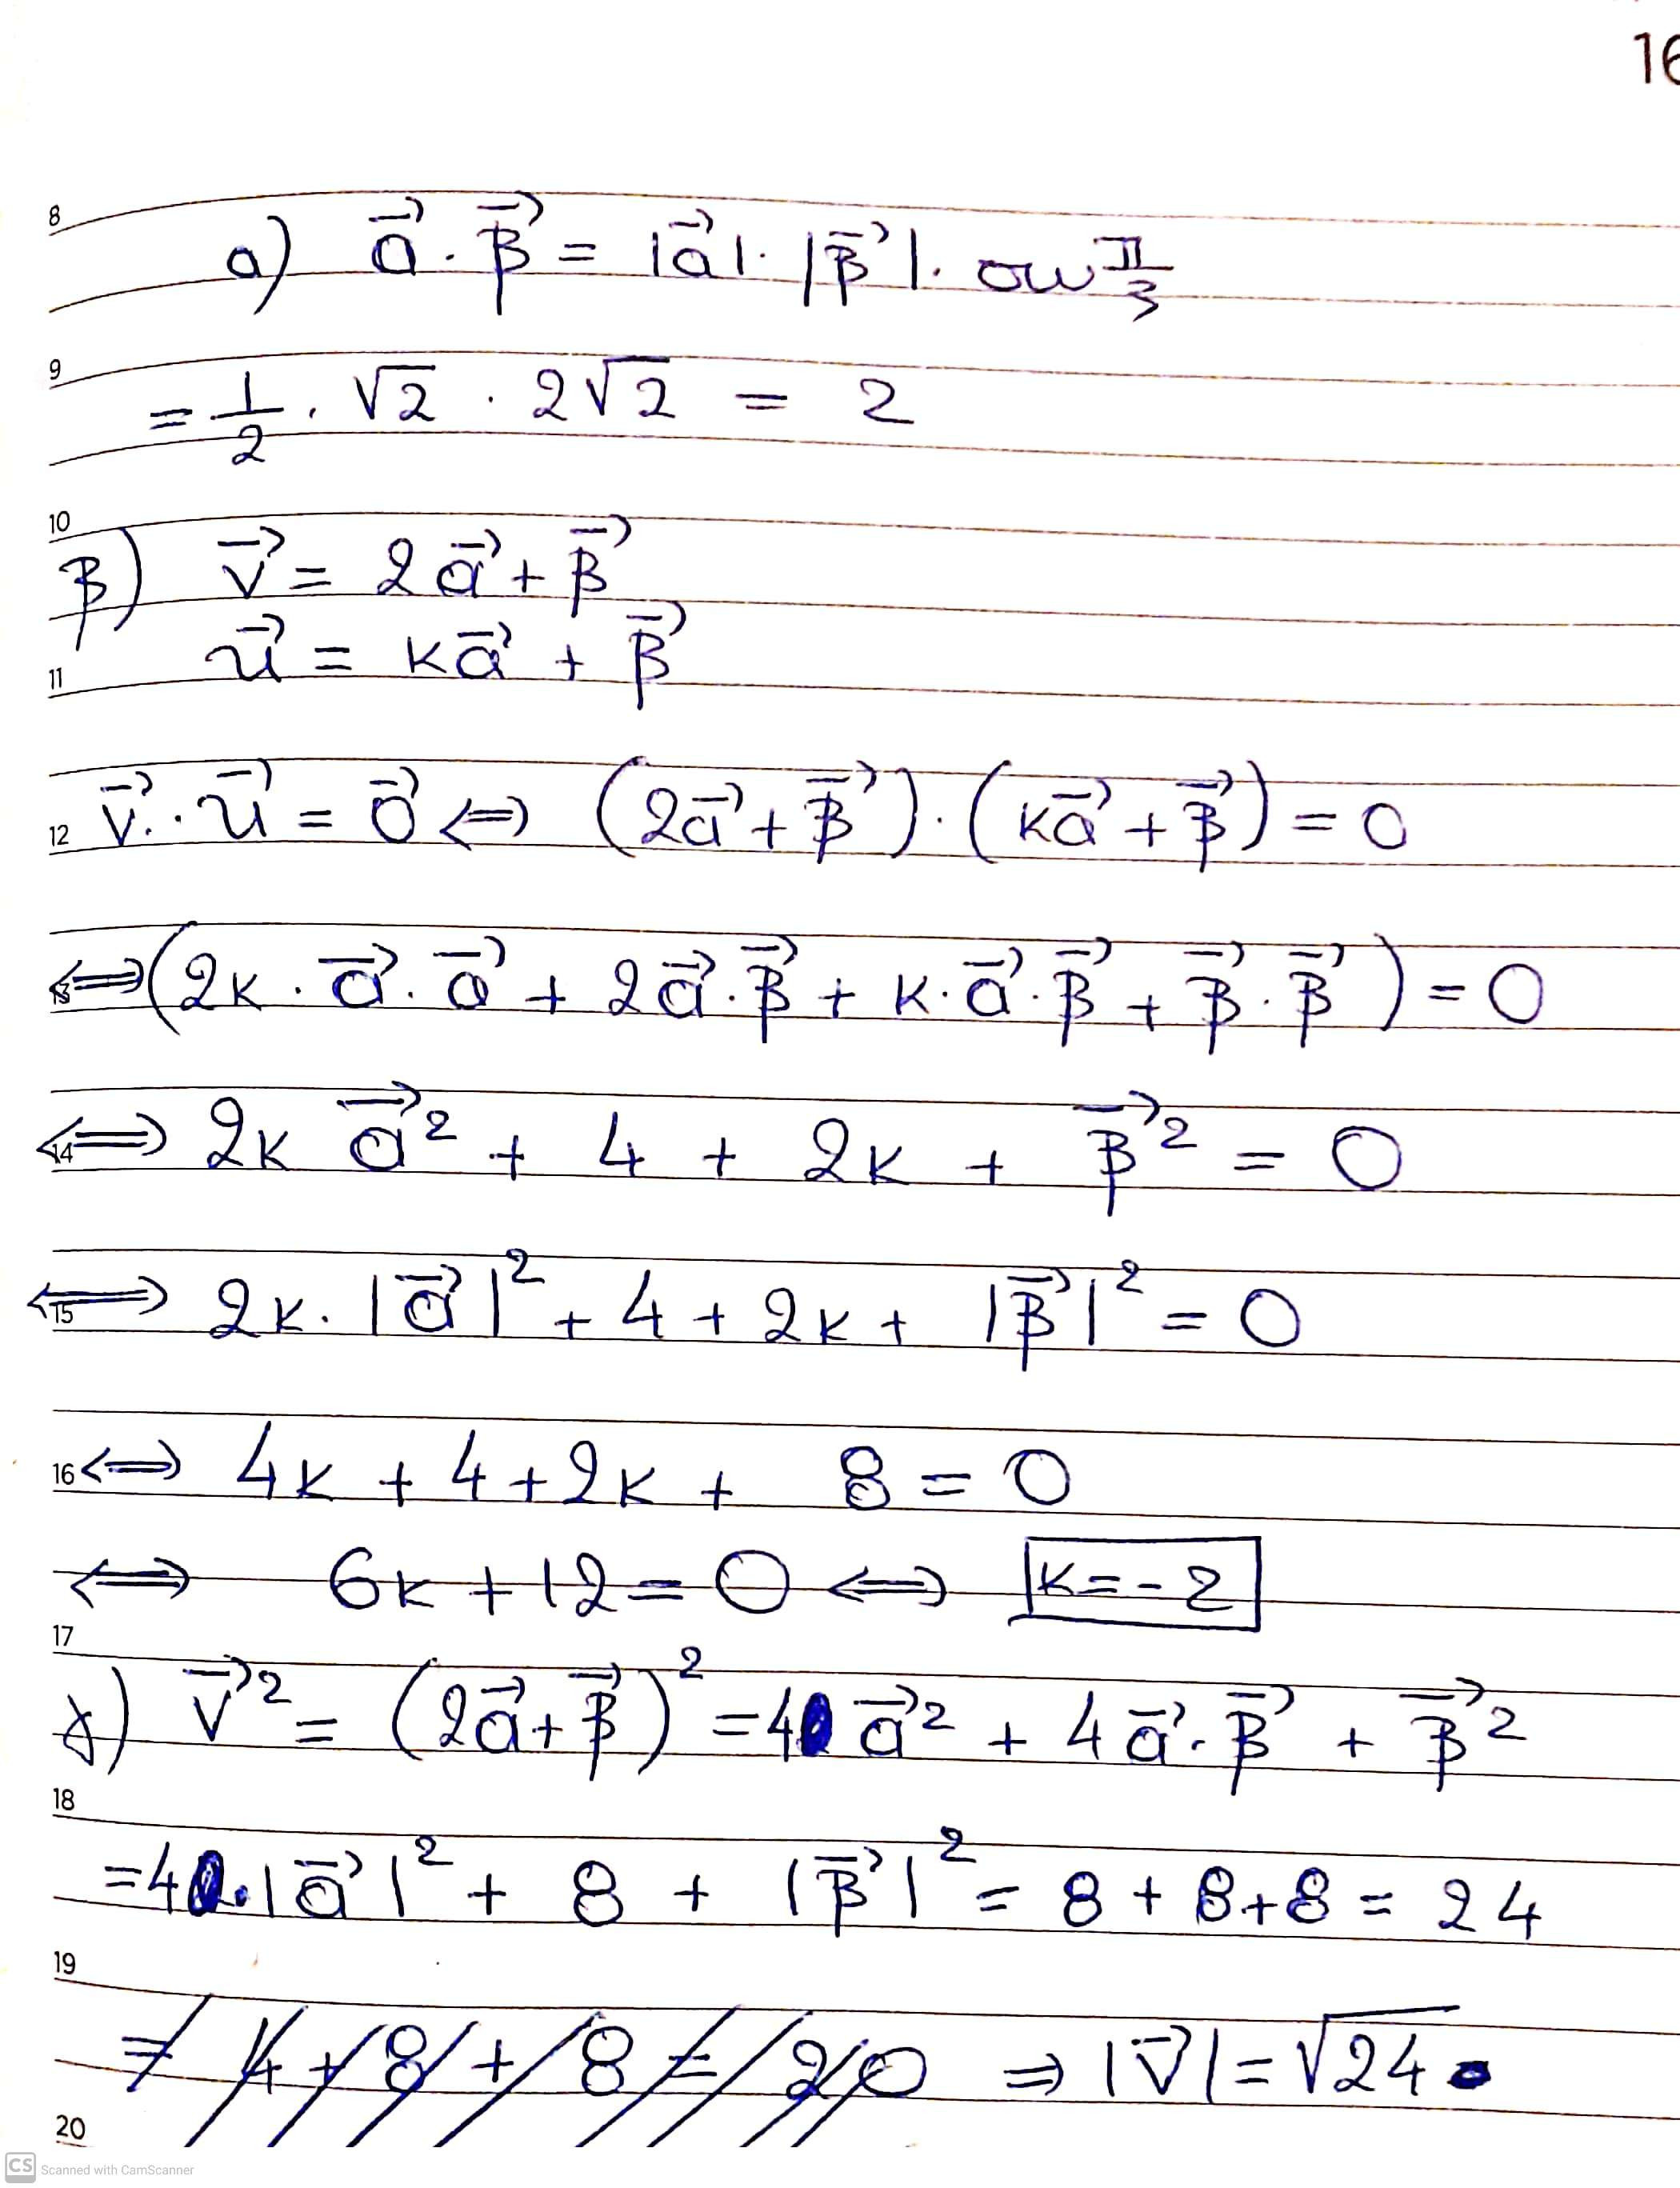 16
8
α) α⃗ · β⃗ = |α⃗| · |β⃗| · συν π/3
9
= 1/2 · √2 · 2√2 = 2
10
β) v⃗ = 2α⃗ + β⃗
11 u⃗ = κα⃗ + β⃗
12 v⃗ · u⃗ = 0⃗ ⇔ (2α⃗ + β⃗) · (κα⃗ + β⃗) = 0
13 ⇔ (2κ · α⃗ · α⃗ + 2α⃗ · β⃗ + κ · α⃗ · β⃗ + β⃗ · β⃗) = 0
14 ⇔ 2κ α⃗² + 4 + 2κ + β⃗² = 0
15 ⇔ 2κ · |α⃗|² + 4 + 2κ + |β⃗|² = 0
16 ⇔ 4κ + 4 + 2κ + 8 = 0
⇔ 6κ + 12 = 0 ⇔ κ = -2
17
γ) v⃗² = (2α⃗ + β⃗)² = 4 α⃗² + 4 α⃗ · β⃗ + β⃗²
18
= 4 · |α⃗|² + 8 + |β⃗|² = 8 + 8 + 8 = 24
19
= 4 + 8 + 8 = 20 ⇒ |v⃗| = √24
20
CS Scanned with CamScanner